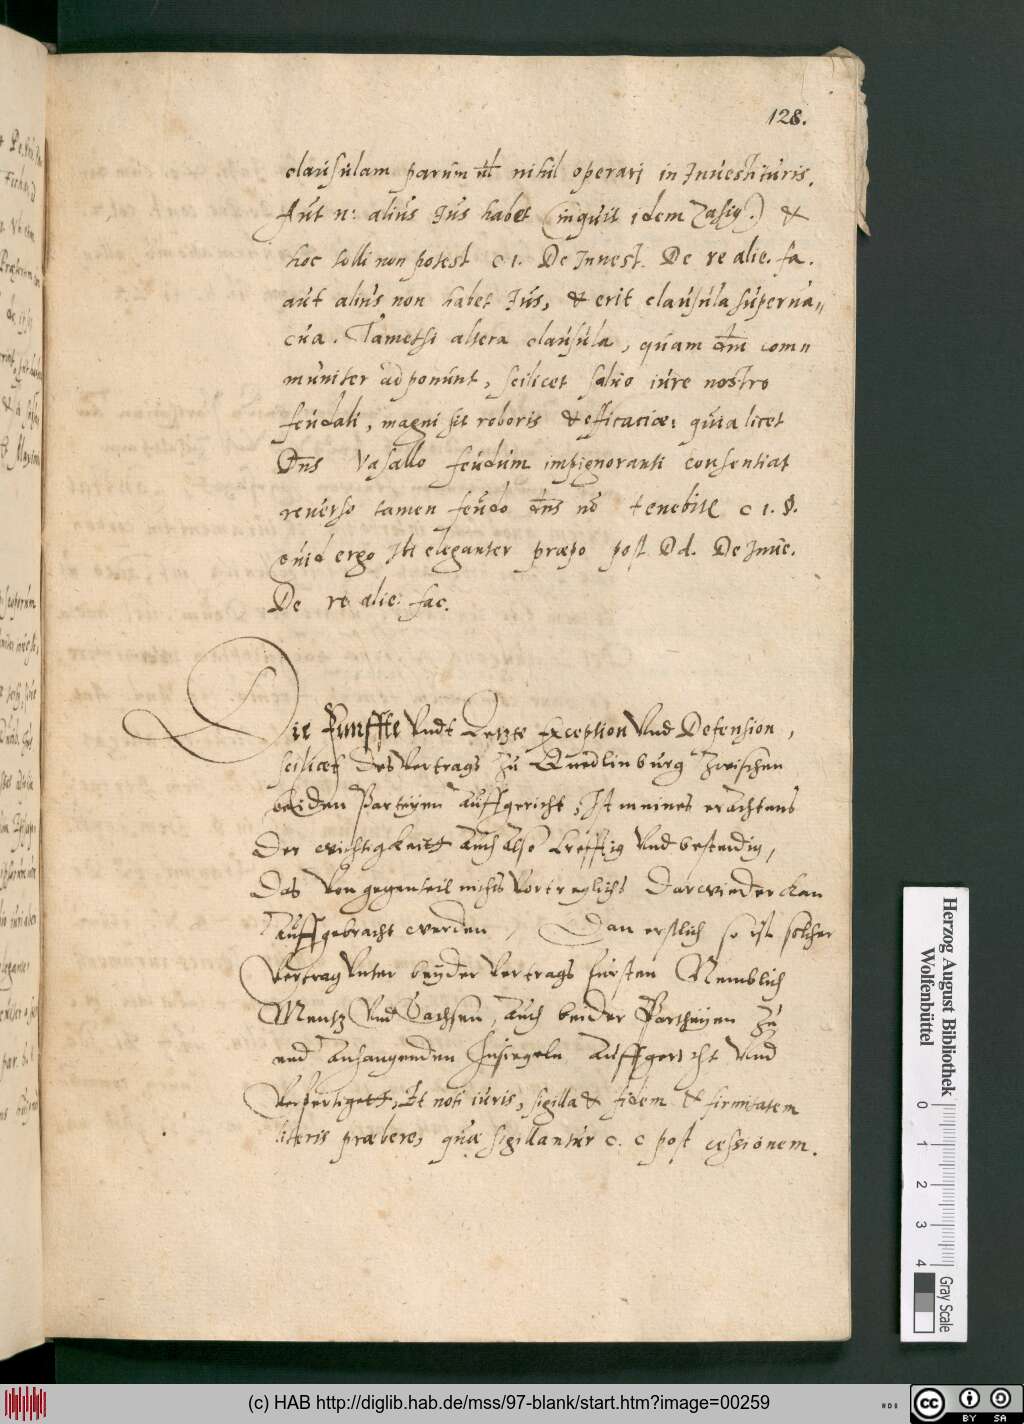 128.
clausulam parum ul nihil operarj in Jnuestituris.
Aut n: alius Jus habet (inquit idem Zasiy.) &
hoc tolli non potest c 1. De Jnuest. De re alie. fa.
aut alius non habet Jus, & erit clausula superua„
cua. Tametsi altera clausula, quam dm com„
muniter adponunt, scilicet saluo iure nostro
feudali, magni sit roboris & efficaciæ: quia licet
Dns Vasallo feudum impignoranti consentiat
reuerso tamen feudo dns nō tenebit c 1. §.
quid ergo Jbi eleganter præpo post Dd. De Jnue.
De re alie. fac.
Die Funffte Vndt Letzte Exception Vnd Defension,
scilicet des Vertrags zu Quedlinburg zwischen
beiden Parteyen auffgericht, Jst meines erachtens
Der wichtigkeitt auch also krefftig Vnd bestendig,
Das Von gegenteil nichts Vortreglichs darwieder kan
auffgebracht werden, Dan erstlich so ist solcher
Vertrag Vnter beyder Vertrags fursten Nemblich
Mentz Vnd Sachsen, auch beider Partheyen zu
end anhangenden Jnsiegeln auffgericht Vnd
Verfertigett, Et noti iuris, sigilla & fidem & firmitatem
literis præbere, quæ sigillantur c. c post cessionem.
Herzog August Bibliothek
Wolfenbüttel
0 1 2 3 4
Gray Scale
(c) HAB http://diglib.hab.de/mss/97-blank/start.htm?image=00259
cc BY SA